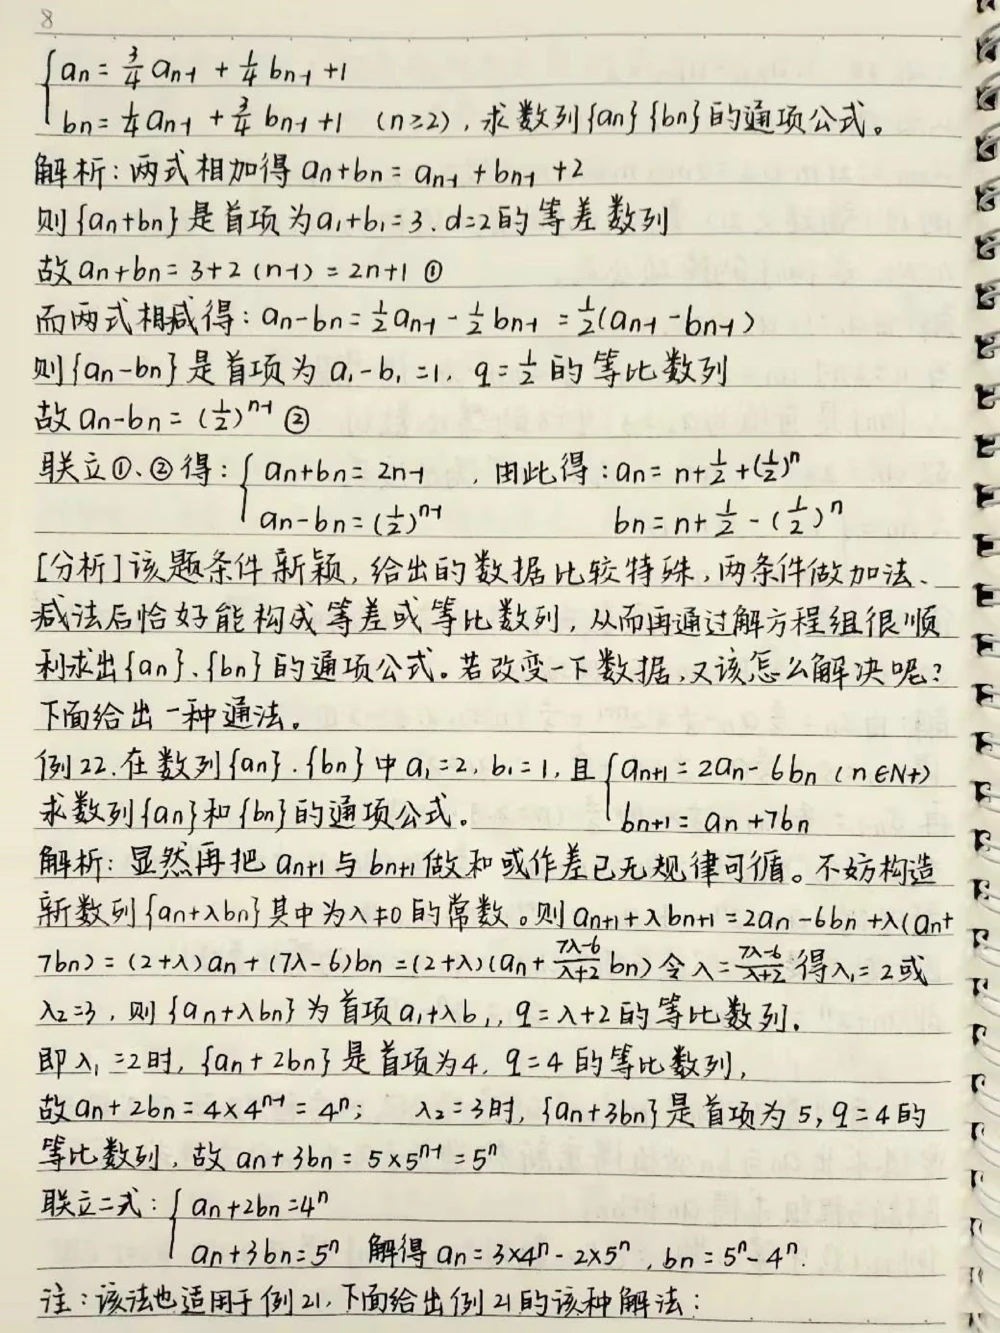 8
{ an = 3/4 an-1 + 1/4 bn-1 + 1
bn = 1/4 an-1 + 3/4 bn-1 + 1 (n≥2), 求数列{an}{bn}的通项公式。
解析: 两式相加得 an+bn = an-1 + bn-1 + 2
则{an+bn}是首项为a₁+b₁=3. d=2的等差数列
故 an+bn = 3+2(n-1) = 2n+1 ①
而两式相减得: an-bn = 1/2 an-1 - 1/2 bn-1 = 1/2(an-1 - bn-1)
则{an-bn}是首项为 a₁-b₁=1, q=1/2 的等比数列
故 an-bn = (1/2)ⁿ⁻¹ ②
联立①、②得: { an+bn = 2n-1 , 由此得: an = n+1/2+(1/2)ⁿ
an-bn = (1/2)ⁿ⁻¹ bn = n+1/2-(1/2)ⁿ
[分析]该题条件新颖, 给出的数据比较特殊, 两条件做加法、
减法后恰好能构成等差或等比数列, 从而再通过解方程组很顺
利求出{an}、{bn}的通项公式。若改变一下数据, 又该怎么解决呢?
下面给出一种通法。
例22. 在数列{an}.{bn}中a₁=2, b₁=1, 且 { an+1 = 2an-6bn (n∈N+)
求数列{an}和{bn}的通项公式。 bn+1 = an+7bn
解析: 显然再把 an+1 与 bn+1 做和或作差已无规律可循。不妨构造
新数列{an+λbn}其中为λ≠0的常数。则an+1+λbn+1=2an-6bn+λ(an+
7bn) = (2+λ)an + (7λ-6)bn = (2+λ)(an + (7λ-6)/(λ+2) bn) 令λ=(7λ-6)/(λ+2) 得λ₁=2或
λ₂=3, 则{an+λbn}为首项a₁+λb₁, q=λ+2的等比数列.
即λ₁=2时, {an+2bn}是首项为4, q=4的等比数列,
故an+2bn = 4×4ⁿ⁻¹ = 4ⁿ; λ₂=3时, {an+3bn}是首项为5, q=4的
等比数列, 故 an+3bn = 5×5ⁿ⁻¹ = 5ⁿ
联立二式: { an+2bn=4ⁿ
an+3bn=5ⁿ 解得 an = 3×4ⁿ-2×5ⁿ, bn = 5ⁿ-4ⁿ.
注: 该法也适用于例21, 下面给出例21的该种解法: